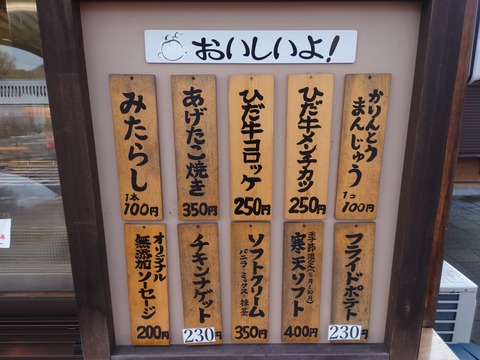 おいしいよ!
みたらし
1本
100円
あげたこ焼き
350円
ひだ牛コロッケ
250円
ひだ牛メンチカツ
250円
かりんとう
まんじゅう
1コ
100円
オリジナル
無添加ソーセージ
200円
チキンナゲット
230円
ソフトクリーム
バニラ・ミックス・抹茶
350円
季節限定(5月~10月)
寒天ソフト
400円
フライドポテト
230円